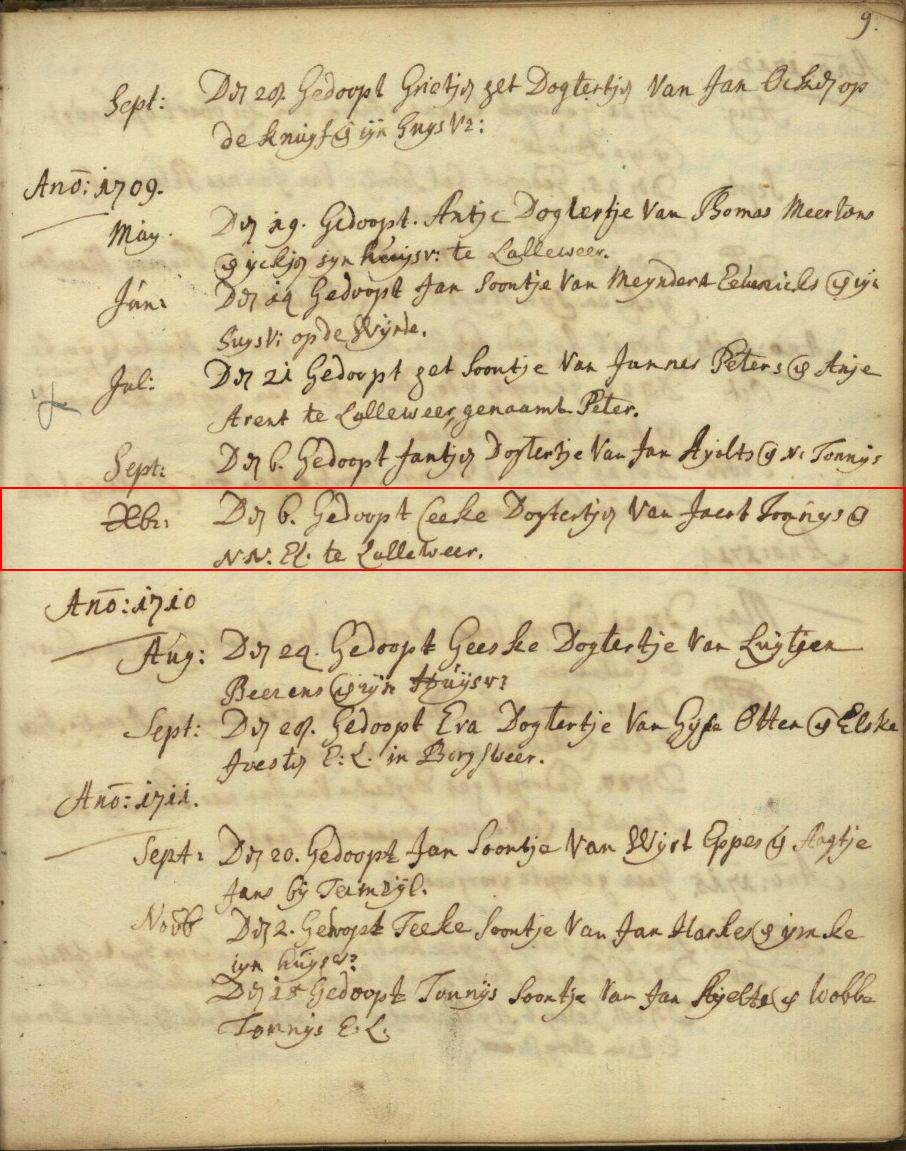 9.
Sept: Den 28. Gedoopt Grietjen het Dogtertjen Van Jan Ockens op
de Knuyf en sijn huysvr:
Ano: 1709.
May. Den 19. Gedoopt. Antje Dogtertje Van Thomas Meertens
en syn huijsv: te Lalleweer.
Jún: Den 14 Gedoopt Jan Soontje Van Meyndert en sijn
huysv: op de Wijnde.
Jul: Den 21 Gedoopt het Soontje Van Jannes Peters en Anje
Arent te Lalleweer, genaamt Peter.
Sept: Den 6. Gedoopt Jantjen Dogtertje Van Jan Ayolts en N: Tonnijs
Xbr: Den 6. Gedoopt Ceeske Dogtertjen Van Jacob Tonnijs en
NN. El. te Lalleweer.
Ano: 1710
Aúg: Den 24. Gedoopt Geeske Dogtertje Van Luytjen
Beerens en sijn Húijsvr:
Sept: Den 28. Gedoopt Eva Dogtertje Van Otten en Elske
Joesten E: L. in Borgsweer.
Ano: 1711.
Sept: Den 20. Gedoopt Jan Soontje Van Wijrt Eppes en Aagtje
Jans bij Termzijl.
Novb Den 2. Gedoopt Teeke Soontje Van Jan Harkes en ijmke
sijn húijsvr:
Den 18 Gedoopt Tonnijs Soontje Van Jan Ayelts en Wobbe
Tonnijs E: L.